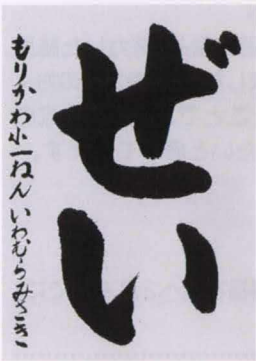 ぜい
もりかわ小一ねんいわむらみさき